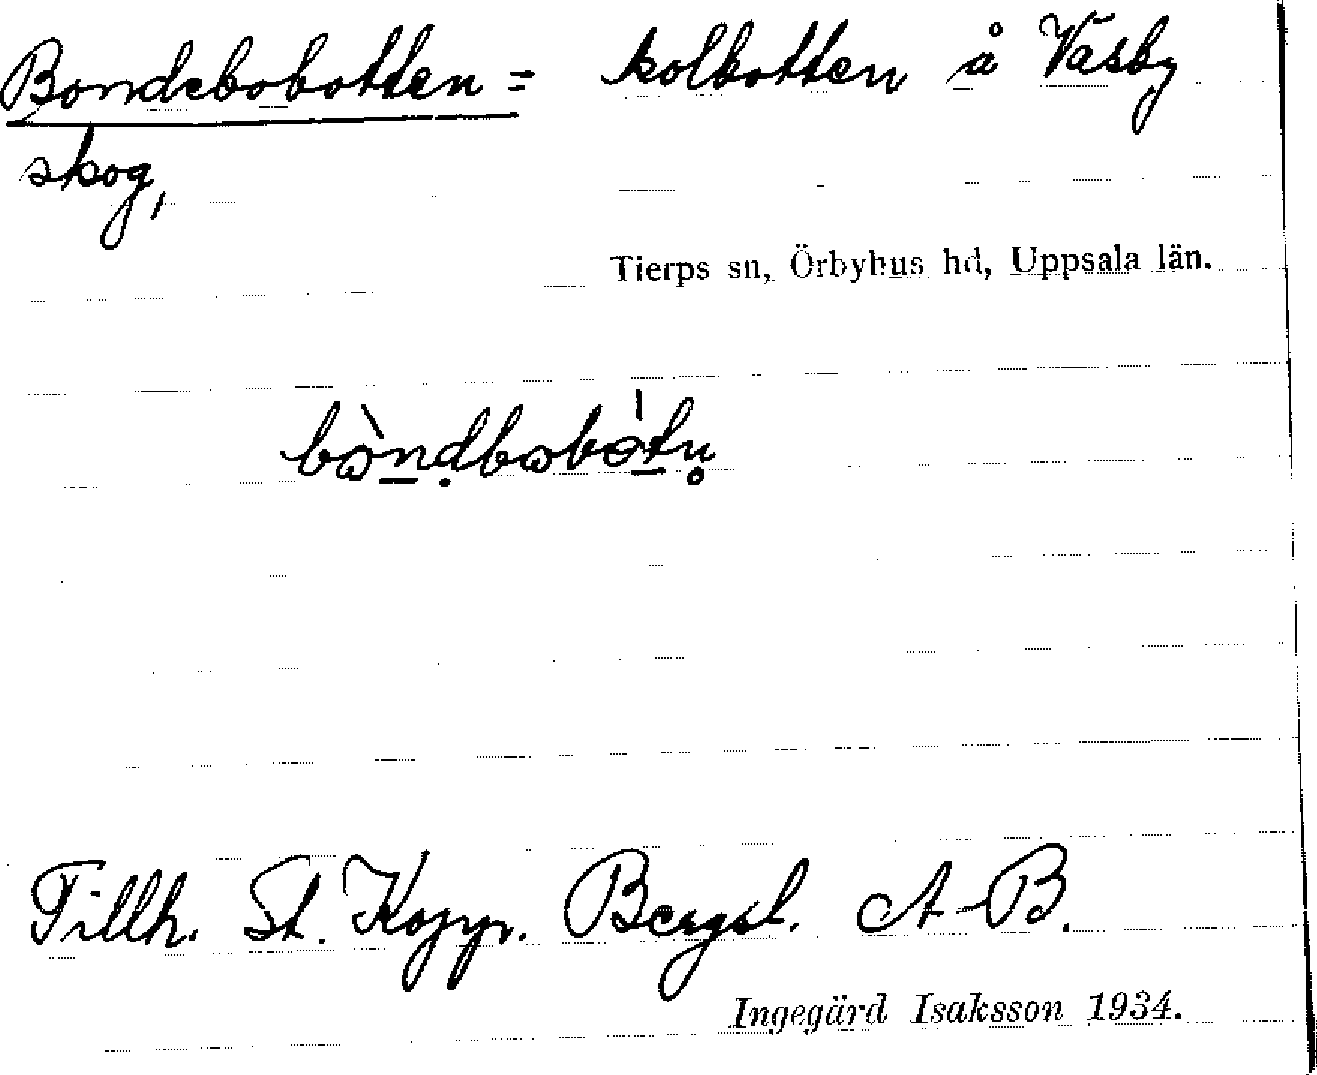 Bondebobotten = kolbotten å Väsby
skog,
Tierps sn, Örbyhus hd, Uppsala län.
Tillh. St. Kopp. Bergsl. A-B.
Ingegärd Isaksson 1934.